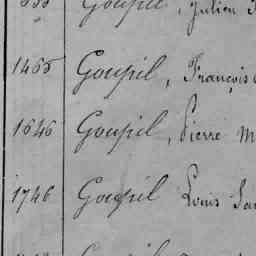 Goupil, Julien
1465 Goupil, François
1646 Goupil, Pierre M
1746 Goupil Louis